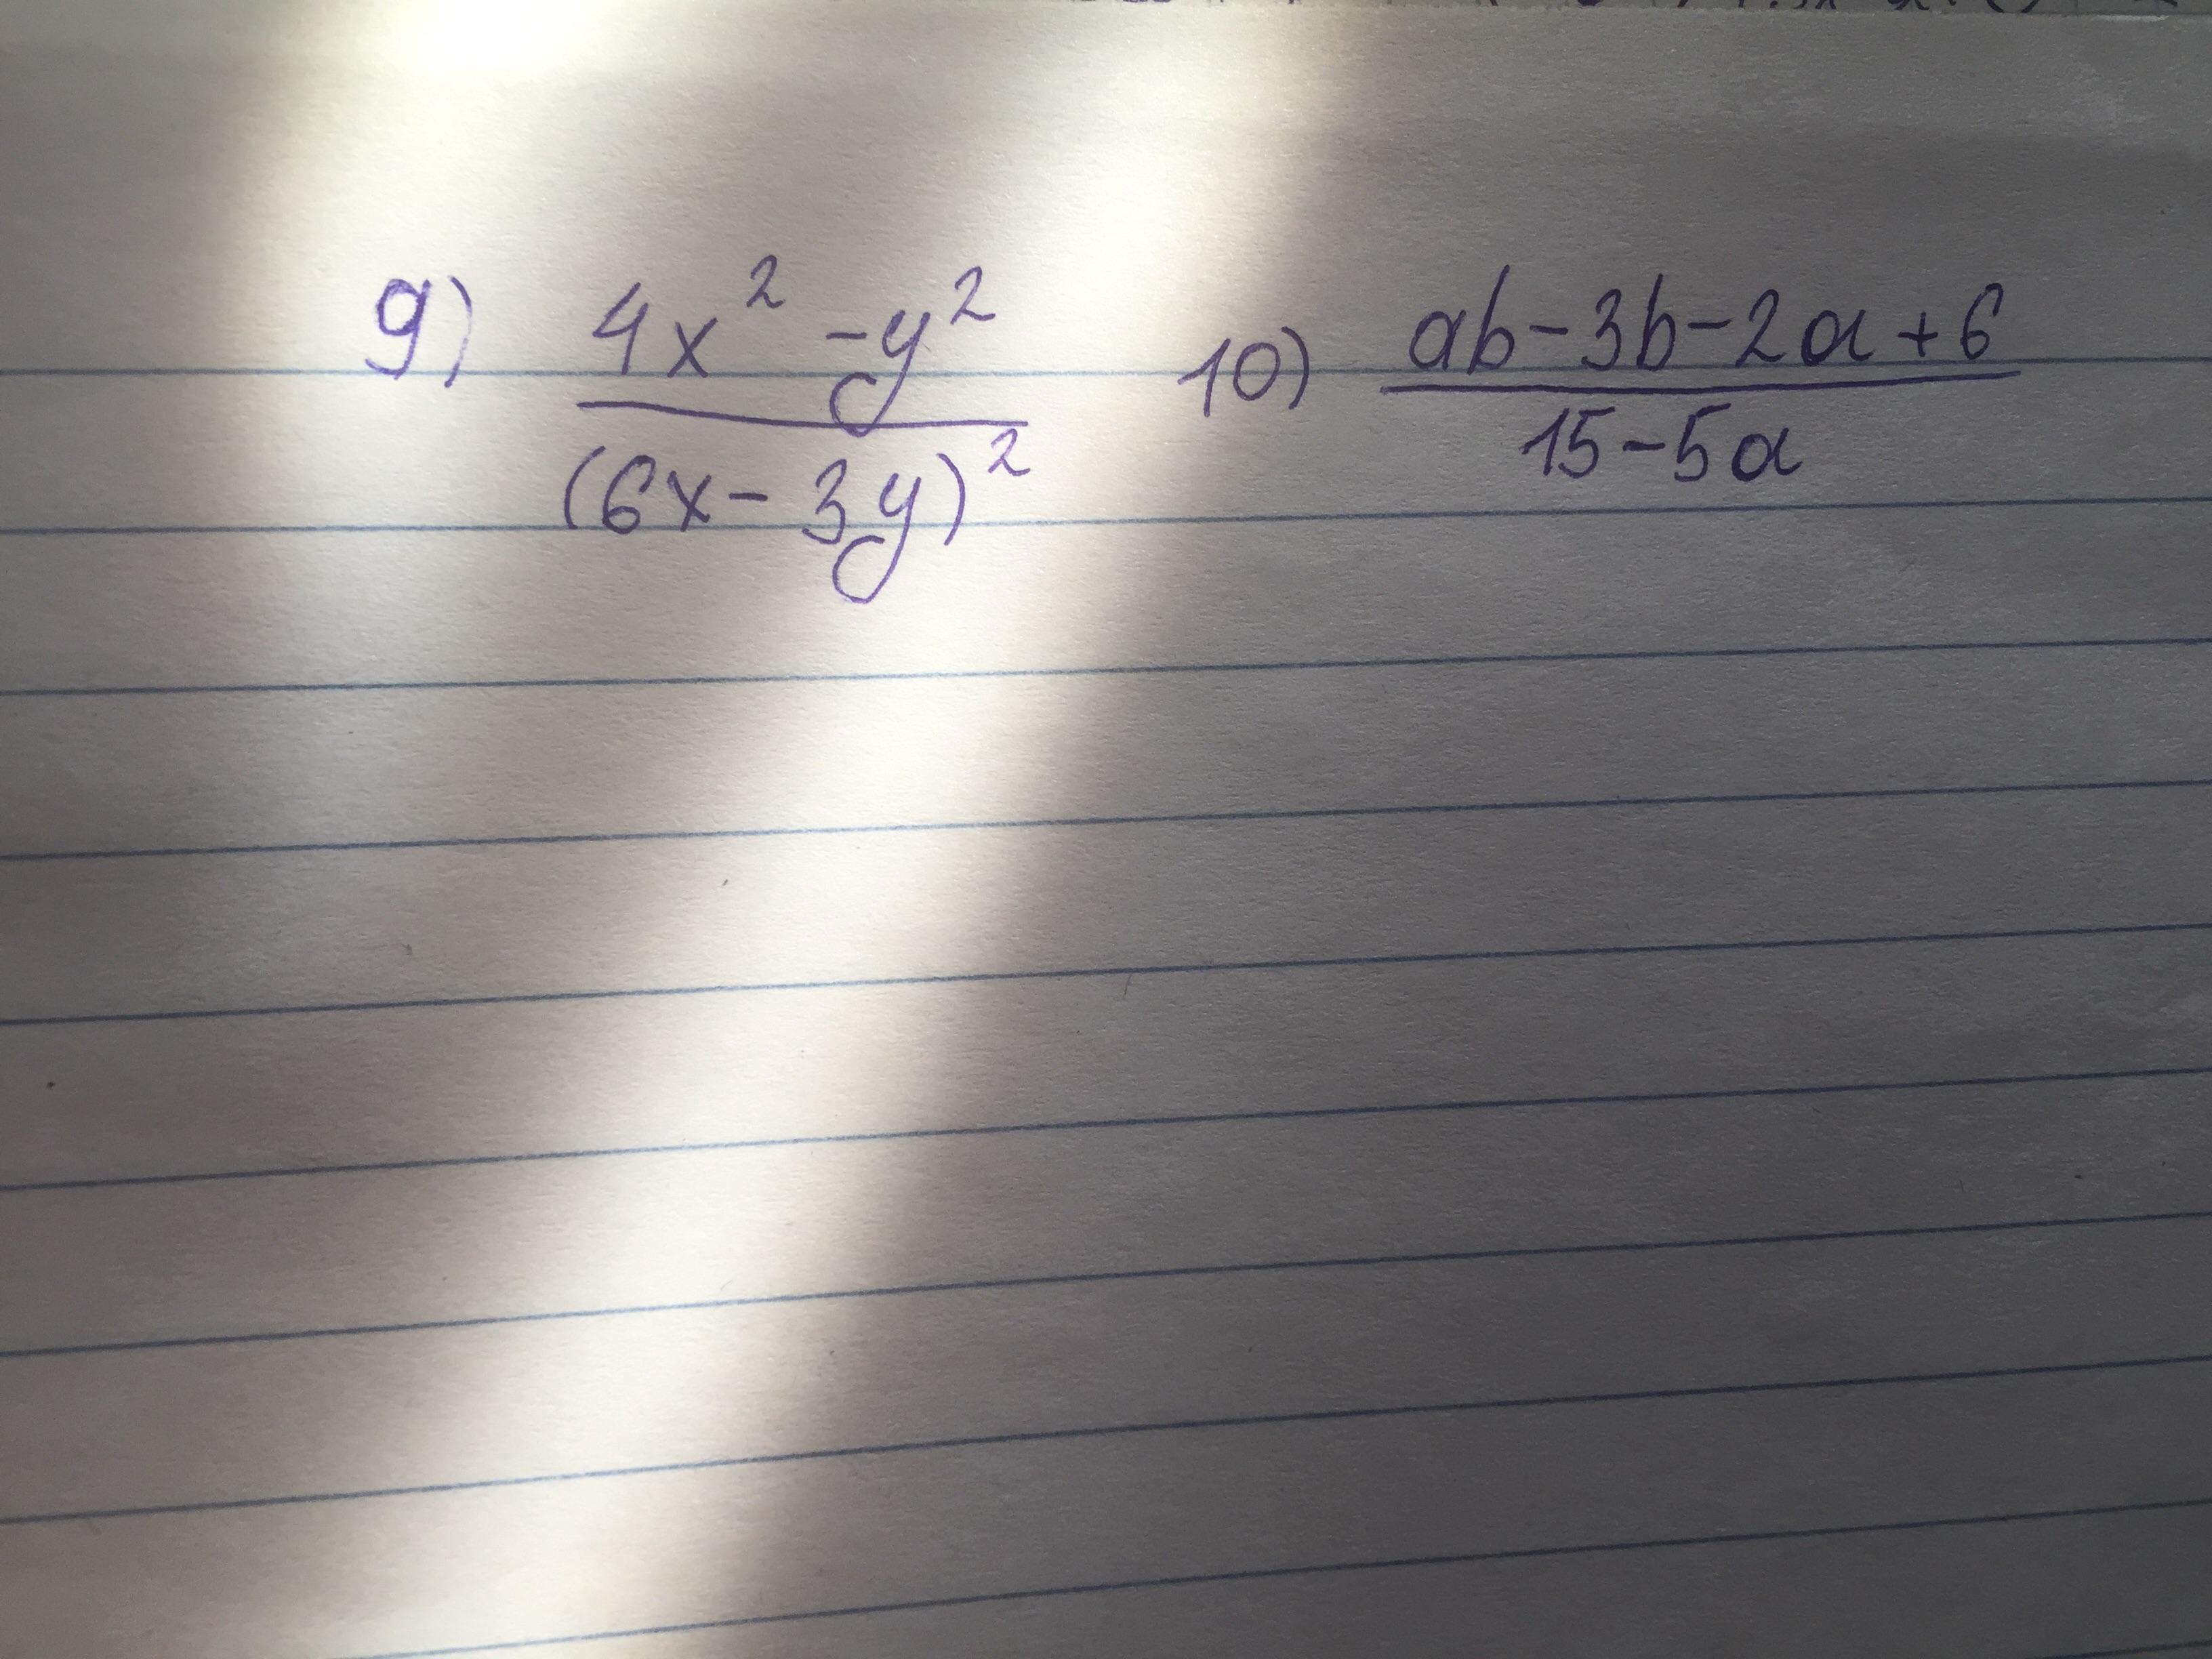 9) 4x² - y² / (6x - 3y)²
10) ab - 3b - 2a + 6 / 15 - 5a